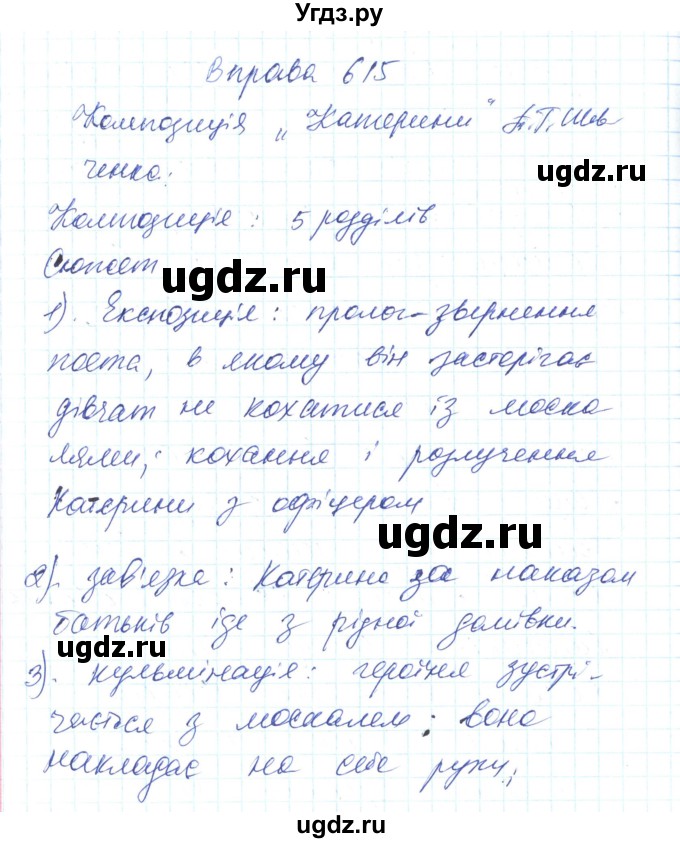 Угдз.ру
Вправа 615
Композиція „Катерини" Т.Г. Шев
ченка.
Композиція: 5 розділів
Сюжет
ugdz.ru
1). Експозиція: пролог-звернення
поета, в якому він застерігає
дівчат не кохатися із моска
лями; кохання і розлучення
Катерини з офіцером
ugdz.ru
2). зав'язка: Катерина за наказом
батьків іде з рідної домівки.
ugdz.ru
3). кульмінація: героїня зустрі-
чається з москалем; вона
накладає на себе руки;
ugdz.ru